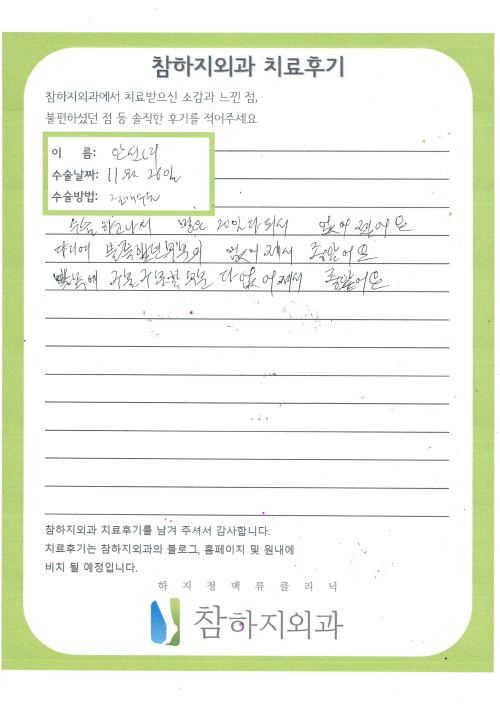 참하지외과 치료후기
참하지외과에서 치료받으신 소감과 느낀 점,
불편하셨던 점 등 솔직한 후기를 적어주세요
이 름: 안선
수술날짜: 11월 26일
수술방법:
수술 하고나서 멍은 20일 다 되서 없어 졌어요
다리에 불룩했던 없어 져서 좋았어요
구불구불한 다 없어져서 좋았어요
참하지외과 치료후기를 남겨 주셔서 감사합니다.
치료후기는 참하지외과의 블로그, 홈페이지 및 원내에
비치 될 예정입니다.
하지정맥류클리닉
참하지외과